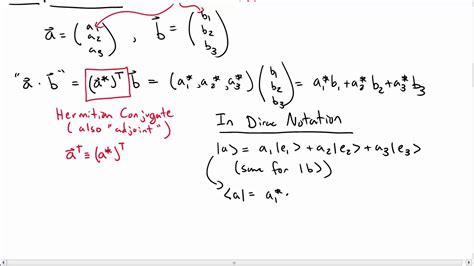 a⃗ = (a₁ a₂ a₃) , b⃗ = (b₁ b₂ b₃)
"a⃗ · b⃗" = (a⃗*)ᵀ b⃗ = (a₁*, a₂*, a₃*) (b₁ b₂ b₃) = a₁*b₁ + a₂*b₂ + a₃*b₃
Hermitian Conjugate
(also "adjoint")
a⃗† ≡ (a⃗*)ᵀ
In Dirac Notation
|a⟩ = a₁|e₁⟩ + a₂|e₂⟩ + a₃|e₃⟩
(same for |b⟩)
⟨a| = a₁* ·